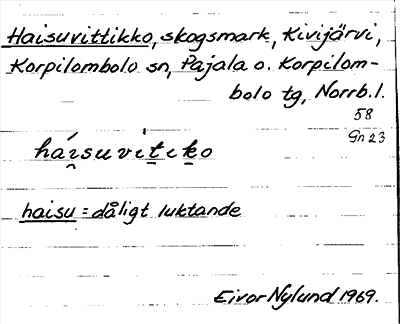 Haisuvittikko, skogsmark, Kivijärvi,
Korpilombolo sn, Pajala o. Korpilom-
bolo tg, Norrb.l.
58
Gn 23
hái̯suvi't̲ik̲o
haisu = dåligt luktande
Eivor Nylund 1969.